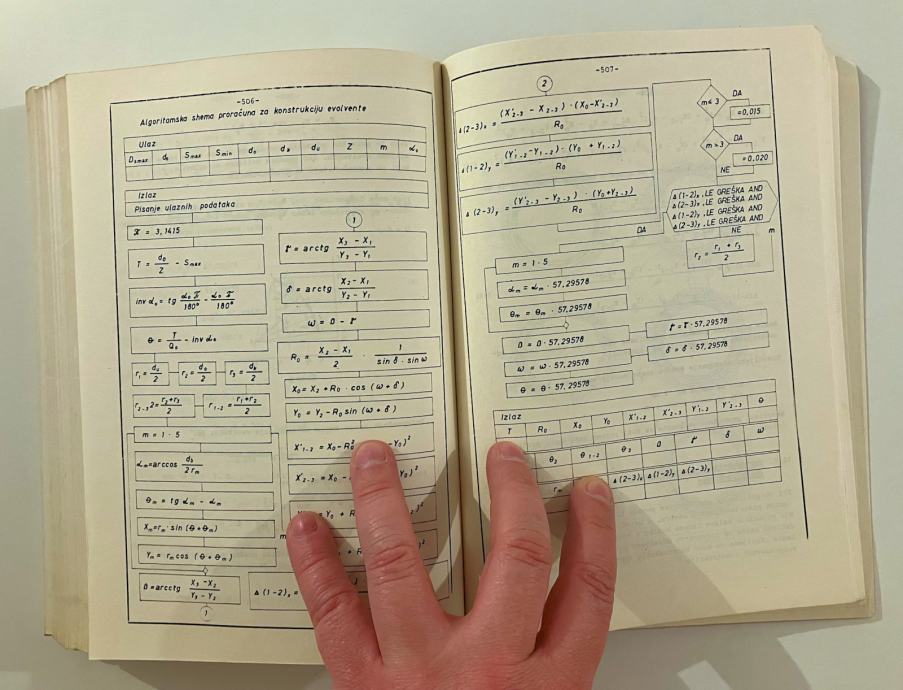 -506-
Algoritamska shema proračuna za konstrukciju evolvente
Ulaz
D₅max d₀ Smax Smin d₀ dₖ dᵤ Z m α₀
Izlaz
Pisanje ulaznih podataka
π = 3,1415
T = d₀/2 - Smax
inv α₀ = tg α₀ π/180° - α₀ π/180°
θ = T/Q₀ - inv α₀
r₁ = dᵤ/2 r₂ = d₀/2 r₃ = dₖ/2
r₂₋₃2 = r₂+r₃/2 r₁₋₂ = r₁+r₂/2
m = 1 - 5
αₘ = arccos d₃/2rₘ
θₘ = tg αₘ - αₘ
Xₘ = rₘ · sin (θ + θₘ)
Yₘ = rₘ cos (θ + θₘ)
D = arcctg X₃ - X₂/Y₃ - Y₂
1
1
γ = arctg X₃ - X₁/Y₃ - Y₁
δ = arctg X₂ - X₁/Y₂ - Y₁
ω = D - γ
R₀ = X₂ - X₁/2 · 1/sin δ · sin ω
X₀ = X₂ + R₀ · cos (ω + δ)
Y₀ = Y₂ - R₀ sin (ω + δ)
X'₁₋₂ = X₀ - R₀² - Y₀)²
X'₂₋₃ = X₀ - Y₀)²
= Y₀ + R )²
+ R )²
m
Δ(1-2)ₓ =
-507-
2
Δ(2-3)ₓ = (X'₂₋₃ - X₂₋₃) · (X₀ - X'₂₋₃)/R₀
Δ(1-2)ᵧ = (Y'₁₋₂ - Y₁₋₂) · (Y₀ + Y₁₋₂)/R₀
Δ(2-3)ᵧ = (Y'₂₋₃ - Y₂₋₃) · (Y₀ + Y₂₋₃)/R₀
m ≤ 3
DA
=0,015
m > 3
DA
=0,020
NE
Δ(1-2)ₓ ,LE GREŠKA AND
Δ(2-3)ₓ ,LE GREŠKA AND
Δ(1-2)ᵧ ,LE GREŠKA AND
Δ(2-3)ᵧ ,LE GREŠKA AND
DA
NE
m
r₂ = r₁ + r₃/2
m = 1 - 5
αₘ = αₘ · 57,29578
θₘ = θₘ · 57,29578
D = D · 57,29578
γ = γ · 57,29578
ω = ω · 57,29578
δ = δ · 57,29578
θ = θ · 57,29578
Izlaz
T R₀ X₀ Y₀ X'₁₋₂ X'₂₋₃ Y'₁₋₂ Y'₂₋₃ θ
θ₂ θ₁₋₂ θ₃ D γ δ ω
rₘ Δ(2-3)ₓ Δ(1-2)ᵧ Δ(2-3)ᵧ